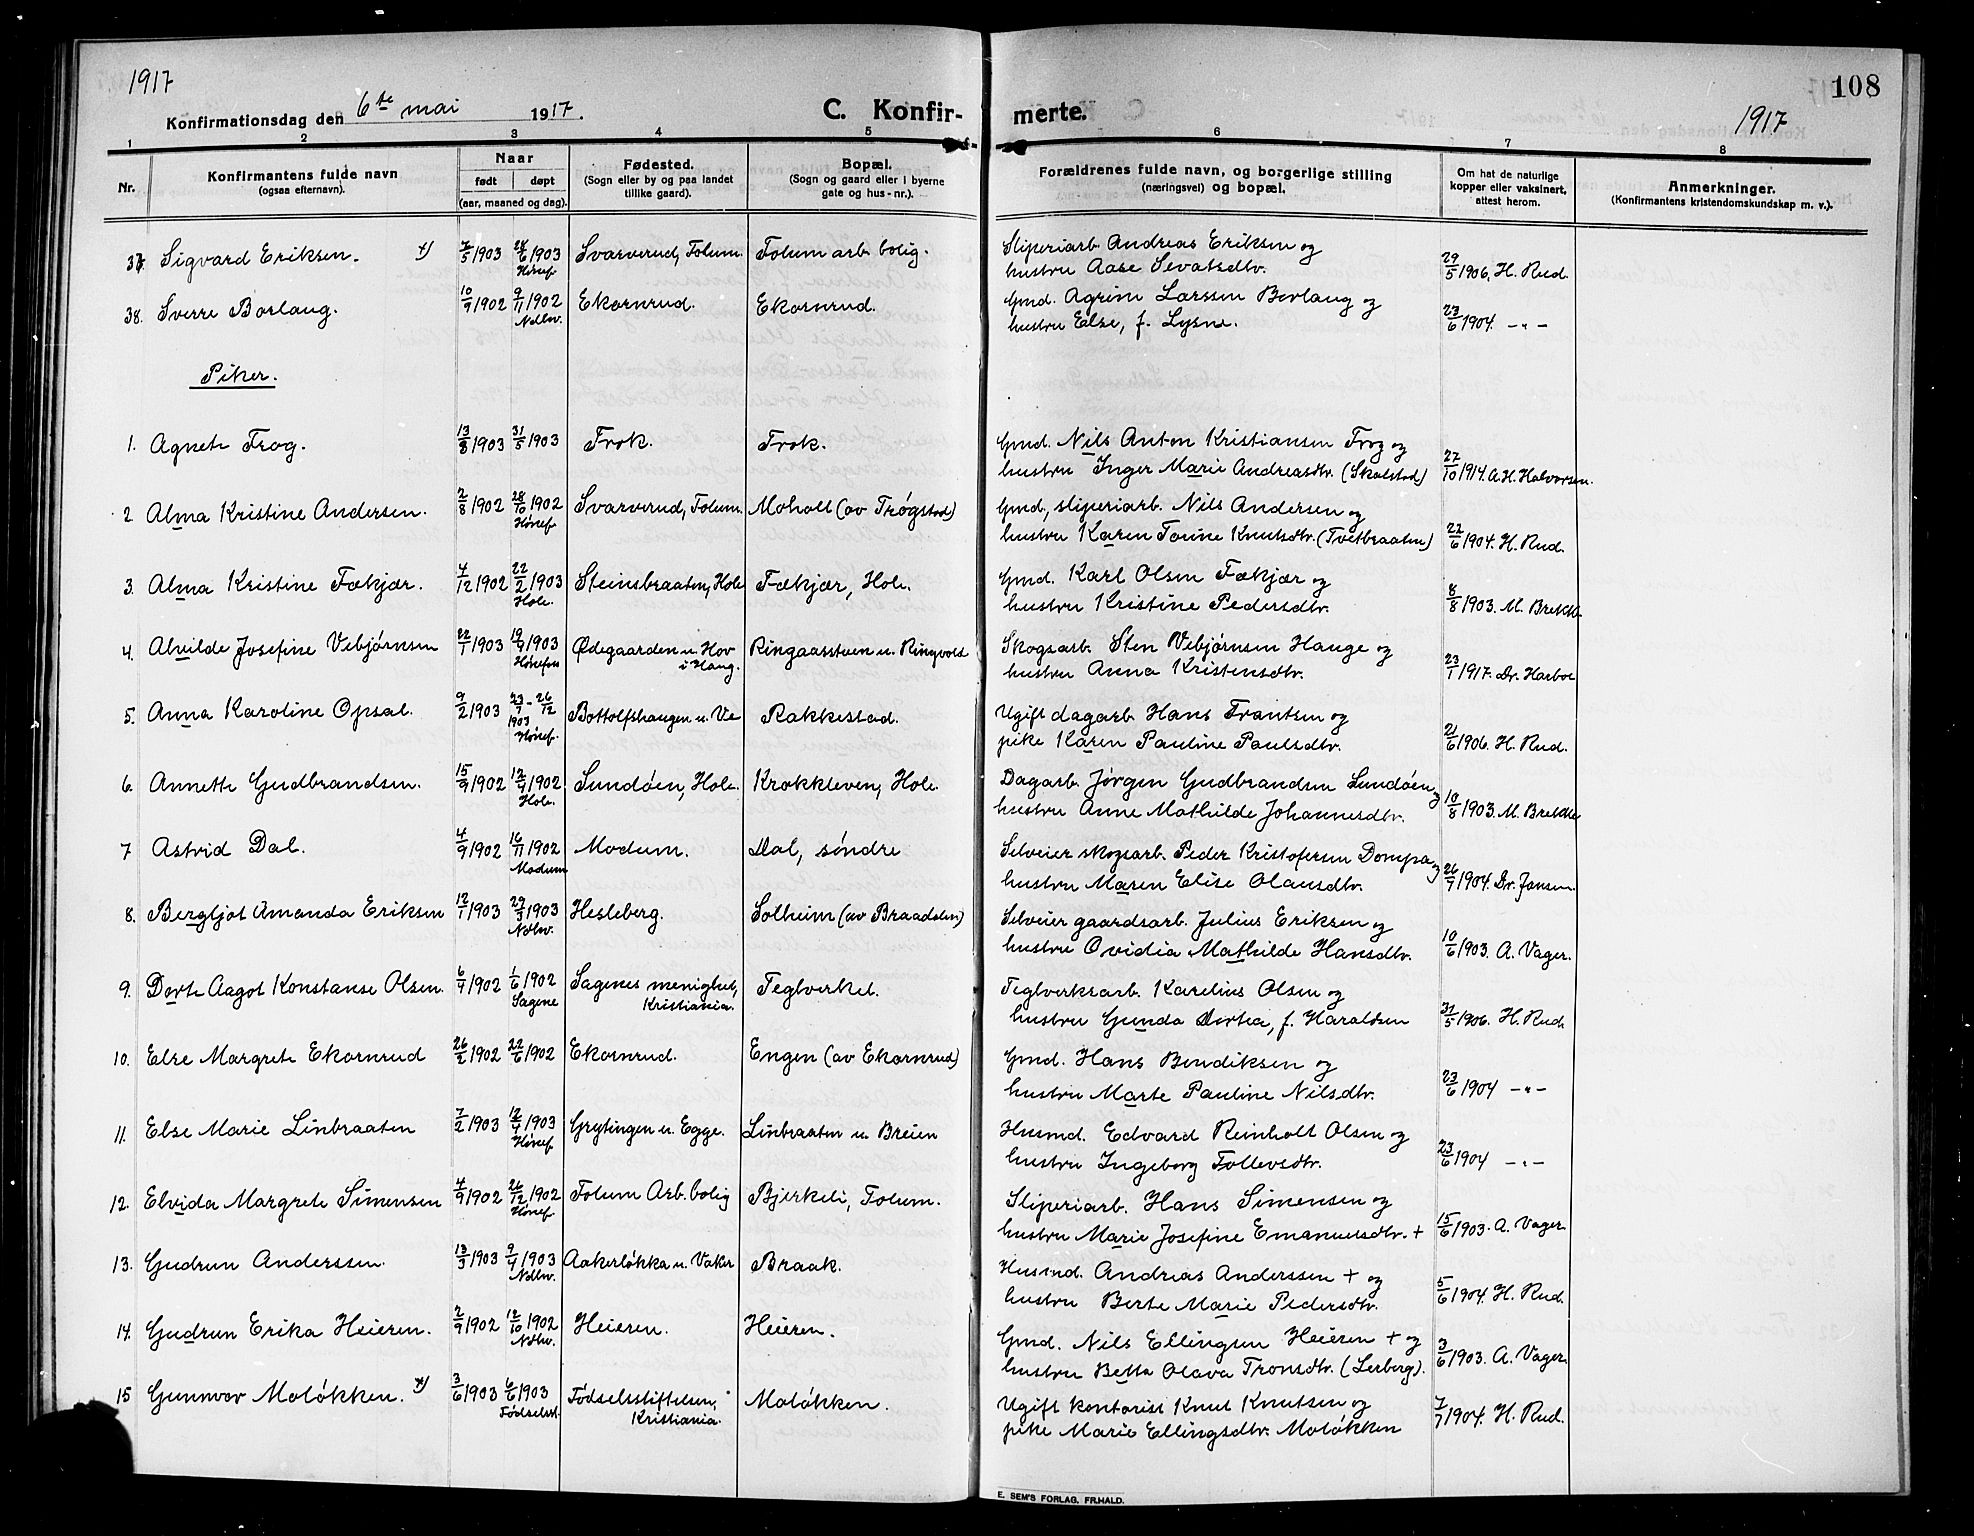 1917
Konfirmationsdag den 6te mai 1917.
C. Konfir-
merte.
1917
108
1 2 3 4 5 6 7 8
Nr.
Konfirmantens fulde navn
(ogsaa efternavn).
Naar
født døpt
(aar, maaned og dag).
Fødested.
(Sogn eller by og paa landet
tillike gaard).
Bopæl.
(Sogn og gaard eller i byerne
gate og hus-nr.).
Forældrenes fulde navn, og borgerlige stilling
(næringsvei) og bopæl.
Om hat de naturlige
kopper eller vaksinert,
attest herom.
Anmerkninger.
(Konfirmantens kristendomskundskap m. v.).
37. Sigvard Eriksen. +) 7/5 1903 28/6 1903 Hønef. Svarverud, Folum. Folum arb. bolig.
Sliperiarb. Andreas Eriksen og
hustru Aase Sevatsdtr. 29/5 1906, H. Rud.
38. Sverre Borlaug. 10/9 1902 9/11 1902 Ndhv. Ekornrud. Ekornrud.
Gmd. Agrim Larssen Borlaug og
hustru Else, f. Lysne. 23/6 1904. -"-
Piker.
1. Agnete Frog. 13/3 1903 31/5 1903 Frok. Frok.
Gmd. Nils Anton Kristiansen Frog og
hustru Inger Marie Andreasdtr. (Skalstad) 27/10 1914. A. H. Halvorsen.
2. Alma Kristine Andersen. 2/8 1902 28/10 1902 Hønef. Svarverud, Folum. Moholt (av Trøgstad)
Gmd., sliperiarb. Nils Andersen og
hustru Karen Torine Knutsdtr. (Tvetbraaten) 22/6 1904. H. Rud.
3. Alma Kristine Fækjær. 4/12 1902 22/2 1903 Hole. Steinsbraaten, Hole Fækjær, Hole.
Gmd. Karl Olsen Fækjær og
hustru Kristine Pedersdtr. 8/8 1903. M. Brekke
4. Alvilde Josefine Vebjørnsen 22/1 1903 19/4 1903 Hønefos Ødegaarden u. Hov i Haug. Ringaasstuen u. Ringvold
Skogsarb. Sten Vebjørnsen Hauge og
hustru Anna Kristensdtr. 23/1 1917. Dr. Harboe
5. Anna Karoline Opsal. 9/2 1903 23/7 - 26/12 1903 Hønef. Bottolfshaugen u. Ve Rakkestad.
Ugift dagarb. Hans Frantsen og
pike Karen Pauline Paulsdtr. 21/6 1906. H. Rud.
6. Annette Gudbrandsen. 15/9 1902 Hole. Sundøen, Hole. Krokkleven, Hole.
Dagarb. Jørgen Gudbrandsen Sundøen og
hustru Anne Mathilde Johannesdtr. 10/8 1903. M. Brekke
7 Astrid Dal. 4/9 1902 16/11 1902 Modum Modum. Dal, søndre
Selveier skogsarb. Peder Kristofersen Dompa og
hustru Maren Elise Olausdtr. 26/9 1904. Dr. Jansen.
8. Bergljot Amanda Eriksen 12/1 1903 29/3 1903 Ndhv. Hesleberg. Solheim (av Braadalen)
Selveier gaardsarb. Julius Eriksen og
hustru Ovidia Mathilde Hansdtr. 10/6 1903. A. Vager.
9. Dorte Aagot Konstanse Olsen. 6/4 1902 1/6 1902 Sagene Sagenes menighet, Kristiania. Teglverket.
Teglverksarb. Karelius Olsen og
hustru Gunda Dortea, f. Haraldsen 31/5 1906. H. Rud.
10. Else Margrete Ekornrud 26/2 1902 22/6 1902 Ekornrud. Engen (av Ekornrud)
Gmd. Hans Bendiksen og
hustru Marte Pauline Nilsdtr. 23/6 1904 -"-
11. Else Marie Linbraaten 7/2 1903 12/4 1903 Hønef. Grytingen u. Egge. Linbraaten u. Breien
Husmd. Edvard Reinholt Olsen og
hustru Ingeborg Tollevsdtr. 23/6 1904 -"-
12. Elvida Margrete Simensen 4/9 1902 26/12 1902 Hønef. Folum Arb. bolig Bjerkeli, Folum.
Sliperiarb. Hans Simensen og
hustru Marie Josefine Emanuelsdtr. + 15/6 1903. A. Vager.
13. Gudrun Anderssen. 13/3 1903 9/4 1903 Ndhv. Aakerløkka u. Vaker Braak.
Husmd. Andreas Anderssen + og
hustru Berte Marie Pedersdtr. 5/6 1904. H. Rud.
14. Gudrun Erika Heieren. 2/9 1902 12/10 1902 Ndhv. Heieren. Heieren.
Gmd. Nils Ellingsen Heieren + og
hustru Betta Olava Tronsdtr. (Lerberg). 3/6 1903. A. Vager.
15 Gunnvor Moløkken. +) 3/6 1903 6/6 1903 Fødselsst. Fødselsstiftelsen, Kristiania. Moløkken.
Ugift kontorist Knut Knutsen og
pike Marie Ellingsdtr. Moløkken 7/7 1904. H. Rud.
E. SEM'S FORLAG, FR.HALD.